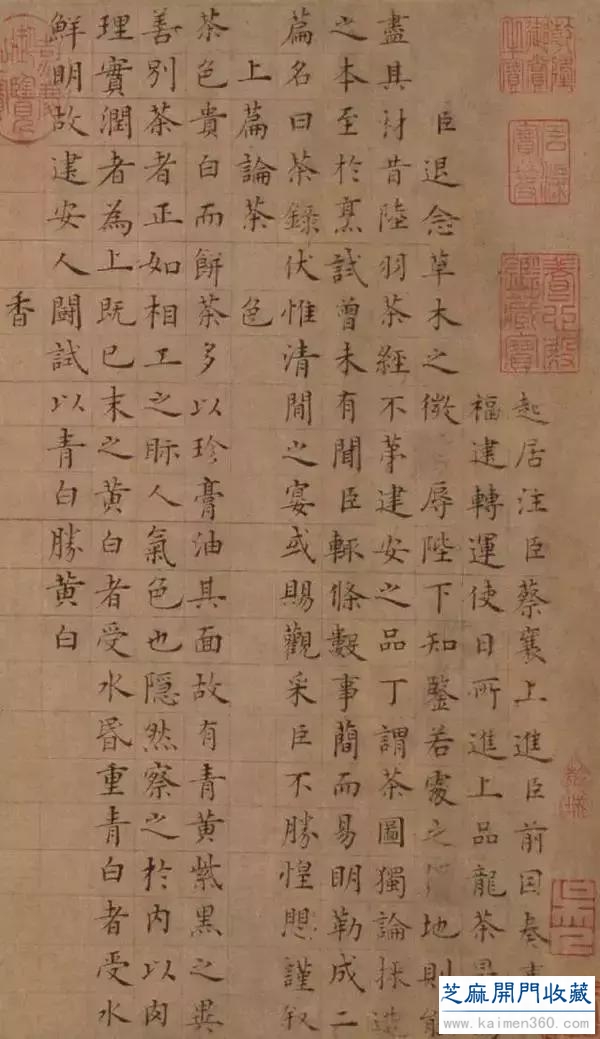 起居注臣蔡襄上進臣前因奏事
福建轉運使日所進上品龍茶最
臣退念草木之微辱陛下知鑒若處之地則能
盡其材昔陸羽茶經不第建安之品丁謂茶圖獨論採造
之本至於烹試曾未有聞臣輒條數事簡而易明勒成二
篇名曰茶錄伏惟清閒之宴或賜觀采臣不勝惶懼謹叙
上篇論茶 色
茶色貴白而餅茶多以珍膏油其面故有青黃紫黑之異
善別茶者正如相工之眎人氣色也隱然察之於內以肉
理實潤者為上既已末之黃白者受水昏重青白者受水
鮮明故建安人鬪試以青白勝黃白
香
石渠寶笈
芝麻開門收藏
www.kaimen360.com